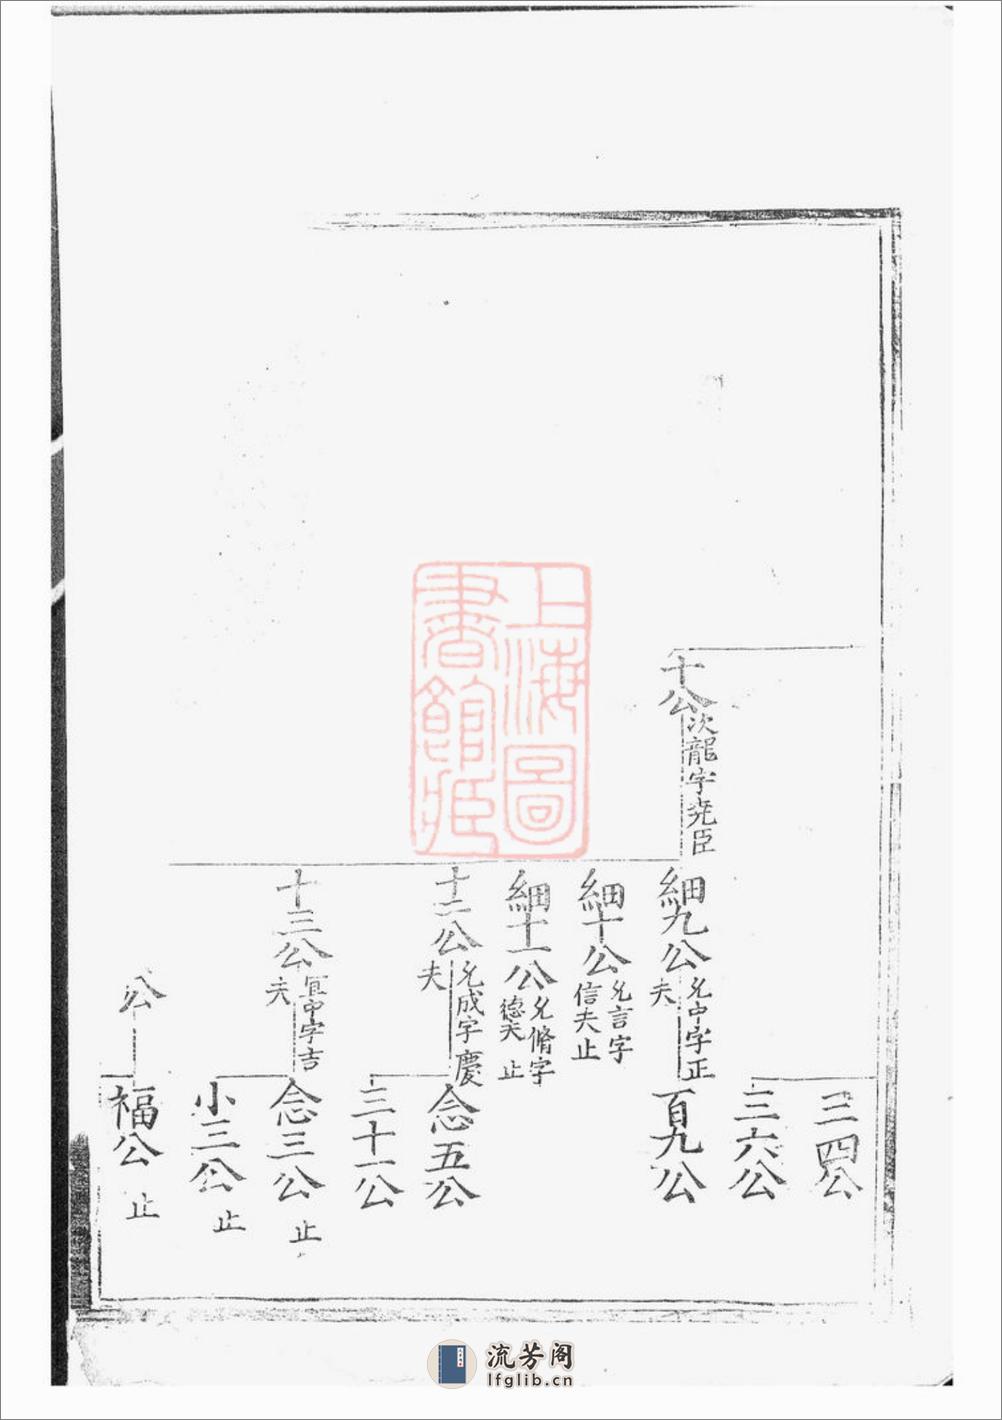 十公
次龍字尭臣
細九公
允中字正
夫
細十公
允言字
信夫止
細十一公
允脩字
德夫 止
十二公
允成字慶
夫
十三公
宜中字吉
夫
公
三四公
三六公
百九公
念五公
三十一公
念三公
止
小三公
止
福公
止
上海圖
書館藏
流芳阁
lfglib.cn